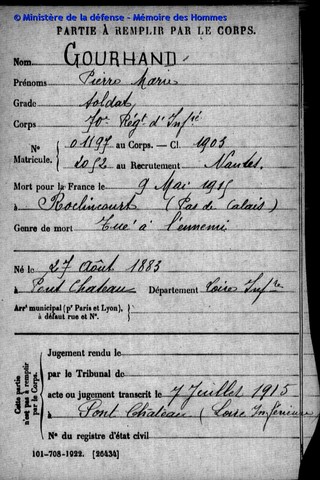 © Ministère de la défense - Mémoire des Hommes
PARTIE À REMPLIR PAR LE CORPS.
Nom GOURHAND
Prénoms Pierre Marie
Grade soldat
Corps 70e Régt d'Infie
N° Matricule. 01197 au Corps. — Cl. 1903
2052 au Recrutement Nantes
Mort pour la France le 9 Mai 1915
à Roclincourt (Pas de Calais)
Genre de mort Tué à l'ennemi
Né le 27 Août 1883
à Pont Chateau Département Loire Infre
Arr¹ municipal (pʳ Paris et Lyon),
à défaut rue et N°.
Cette partie n'est pas à remplir par le Corps.
Jugement rendu le
par le Tribunal de
acte ou jugement transcrit le 7 Juillet 1915
à Pont Chateau (Loire Inférieure
N° du registre d'état civil
101-708-1922. [26434]